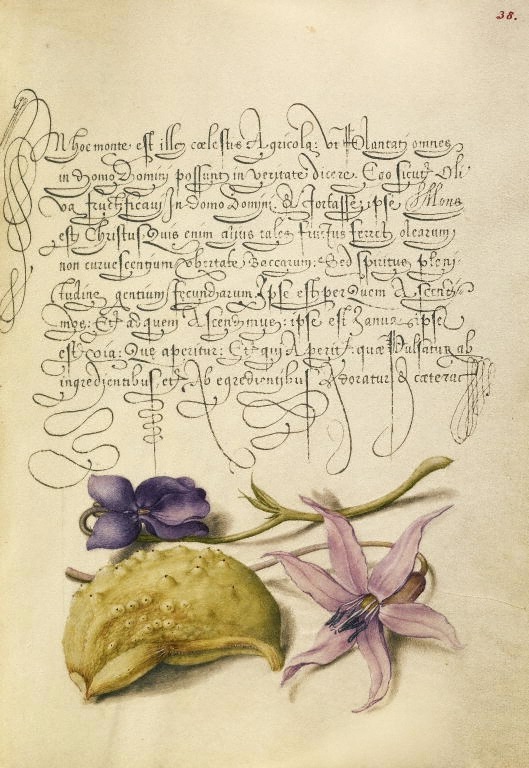 38.
In hoc monte est ille cœlestis Agricola: Ut Plantati omnes
in Domo Dominj possunt in veritate dicere. Ego sicut Oli
va fructificavj In Domo Dominj. Et fortasse ipse Mons
est Christus Quis enim alius tales fructus ferret olearum
non curvescentium ubertate Baccarum: Sed spiritus pleni
tudine gentium fecundarum. Ipse est per Quem Ascendi-
mus: Et ad quem Ascendimus: ipse est Janua: ipse
est via: Que aperitur: Et qui Aperit: quæ Pulsatur ab
ingredientibus, et Ab egredientibus Adoratur & cætera